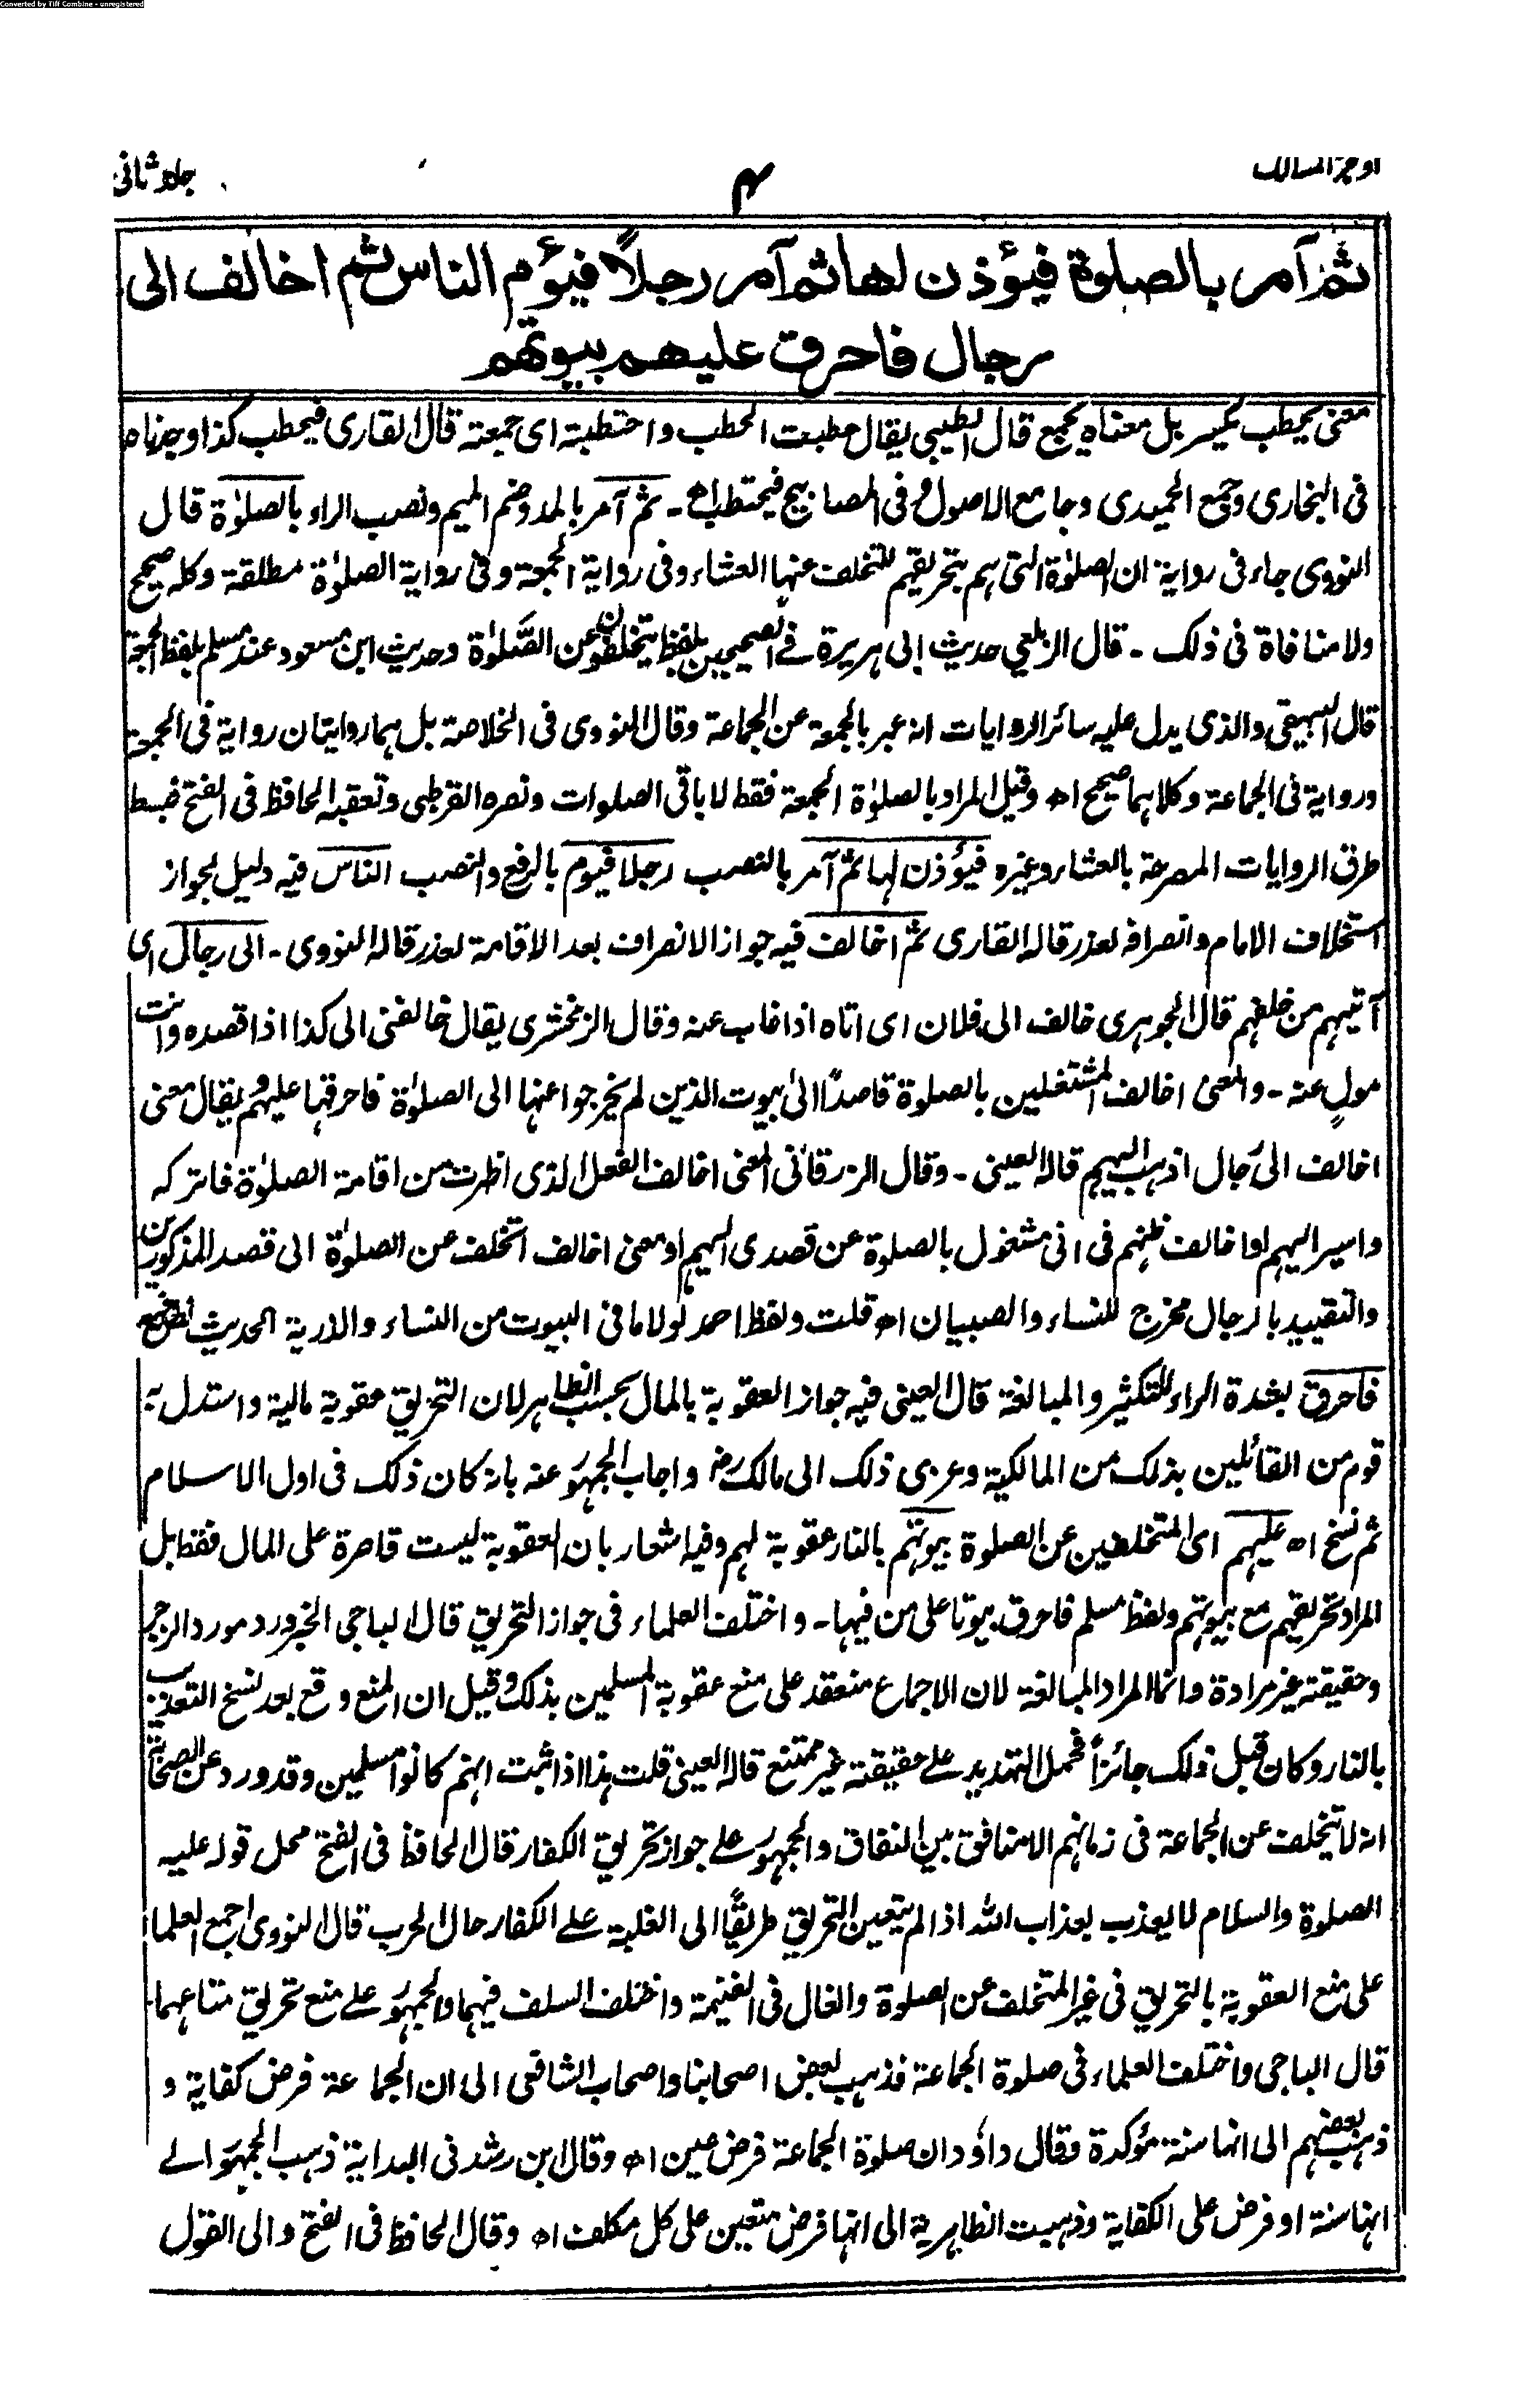 Converted by Tiff Combine - unregistered
اوجز المسالك
٤
جلد ثانی
ثم آمر بالصلوة فيؤذن لها ثم آمر رجلاً فيؤم الناس ثم اخالف الى
رجال فاحرق عليهم بيوتهم
معنى يحطب يكسر بل معناه يجمع قال الطيبي يقال حطبت الحطب واحتطبته اى جمعته قال القارى فيحطب كذا وجدناه
فى البخارى وجمع الحميدى وجامع الاصول وفى المصابيح فيحتطب اھ ـ ثم آمر بالمد وضم الميم ونصب الراء بالصلوٰة قال
النووى جاء فى رواية ان الصلوٰة التى ہم بتحريقہم للتخلف عنہا العشاء وفى رواية الجمعة وفى رواية الصلوٰة مطلقة وكلہ صحيح
ولا منافاة فى ذلك ـ قال الزيلعي حديث ابى ہريرة فے الصحيحين بلفظ يتخلفون عن الصَّلوٰة وحديث ابن مسعود عند مسلم بلفظ الجمعة
قال البيہقى والذى يدل عليہ سائر الروايات انہ عبر بالجمعة عن الجماعة وقال النووى فى الخلاصة بل ہما روايتان رواية فى الجمعة
ورواية فى الجماعة وكلاہما صحيح اھ وقيل المراد بالصلوٰة الجمعة فقط لا باقى الصلوات ونصرہ القرطبى وتعقبہ الحافظ فى الفتح فبسط
طرق الروايات المصرحة بالعشاء وغيرہ فيؤذن لہا ثم آمر بالنصب رجلا فيوم بالرفع والنصب الناس فيہ دليل لجواز
استخلاف الامام وانصرافہ لعذر قالہ القارى ثم اخالف فيہ جواز الانصراف بعد الاقامة لعذر قالہ النووى ـ الى رجال اى
آتيہم من خلفہم قال الجوہرى خالف الى فلان اى اتاہ اذا غاب عنہ وقال الزمخشرى يقال خالفنى الى كذا اذا قصدہ وانت
مولٍ عنہ ـ والمعنى اخالف المشتغلين بالصلوة قاصدًا الىٰ بيوت الذين لم يخرجوا عنہا الى الصلوٰة فاحرقہا عليہم ويقال معنى
اخالف الى رجال اذہب اليہم قالہ العينى ـ وقال الزرقانى المعنى اخالف الفعل الذى اظہرت من اقامة الصلوٰة فاتركہ
واسير اليہم او اخالف ظنہم فى انى مشغول بالصلوة عن قصدى اليہم او معنى اخالف اتخلف عن الصلوٰة الى قصد المذكورين
والتقييد بالرجال مخرج للنساء والصبيان اھ قلت ولفظ احمد لولا ما فى البيوت من النساء والذرية الحديث
فاحرق بشدة الراء للتكثير والمبالغة قال العينى فيہ جواز العقوبة بالمال بحسب الظاہر لان التحريق عقوبة مالية واستدل بہ
قوم من القائلين بذلك من المالكية وعزى ذلك الى مالك رض واجاب الجمہور عنہ بانہ كان ذلك فى اول الاسلام
ثم نسخ اھ عليہم اى المتخلفين عن الصلوة بيوتہم بالنار عقوبة لہم وفيہ اشعار بان العقوبة ليست قاصرة على المال فقط بل
المراد تحريقہم مع بيوتہم ولفظ مسلم فاحرق بيوتا على من فيہا ـ واختلف العلماء فى جواز التحريق قال الباجى الخبر ورد مورد الزجر
وحقيقتہ غير مرادة وانما المراد المبالغة لان الاجماع منعقد على منع عقوبة المسلمين بذلك وقيل ان المنع وقع بعد نسخ التعذيب
بالنار وكان قبل ذلك جائزاً فحمل التہديد علے حقيقتہ غير ممتنع قالہ العينى قلت ہذا اذا ثبت انہم كانوا مسلمين وقد ورد عن الصحابة
انہ لا يتخلف عن الجماعة فى زمانہم الا منافق بين النفاق والجمہور علے جواز تحريق الكفار قال الحافظ فى الفتح محل قولہ عليہ
الصلوة والسلام لا يعذب بعذاب اللہ اذا لم يتعين التحريق طريقًا الى الغلبة علے الكفار حال الحرب قال النووى اجمع العلماء
على منع العقوبة بالتحريق فى غير المتخلف عن الصلوة والغال فى الغنيمة واختلف السلف فيہما والجمہور علے منع تحريق متاعہما
قال الباجى واختلف العلماء فى صلوة الجماعة فذہب بعض اصحابنا واصحاب الشافعى الى ان الجماعة فرض كفاية و
ذہب بعضہم الى انہا سنة مؤكدة وقال داؤد ان صلوة الجماعة فرض عين اھ وقال ابن رشد فى البداية ذہب الجمہور الے
انہا سنة او فرض على الكفاية وذہبت الظاہرية الى انہا فرض متعين على كل مكلف اھ وقال الحافظ فى الفتح والى القول